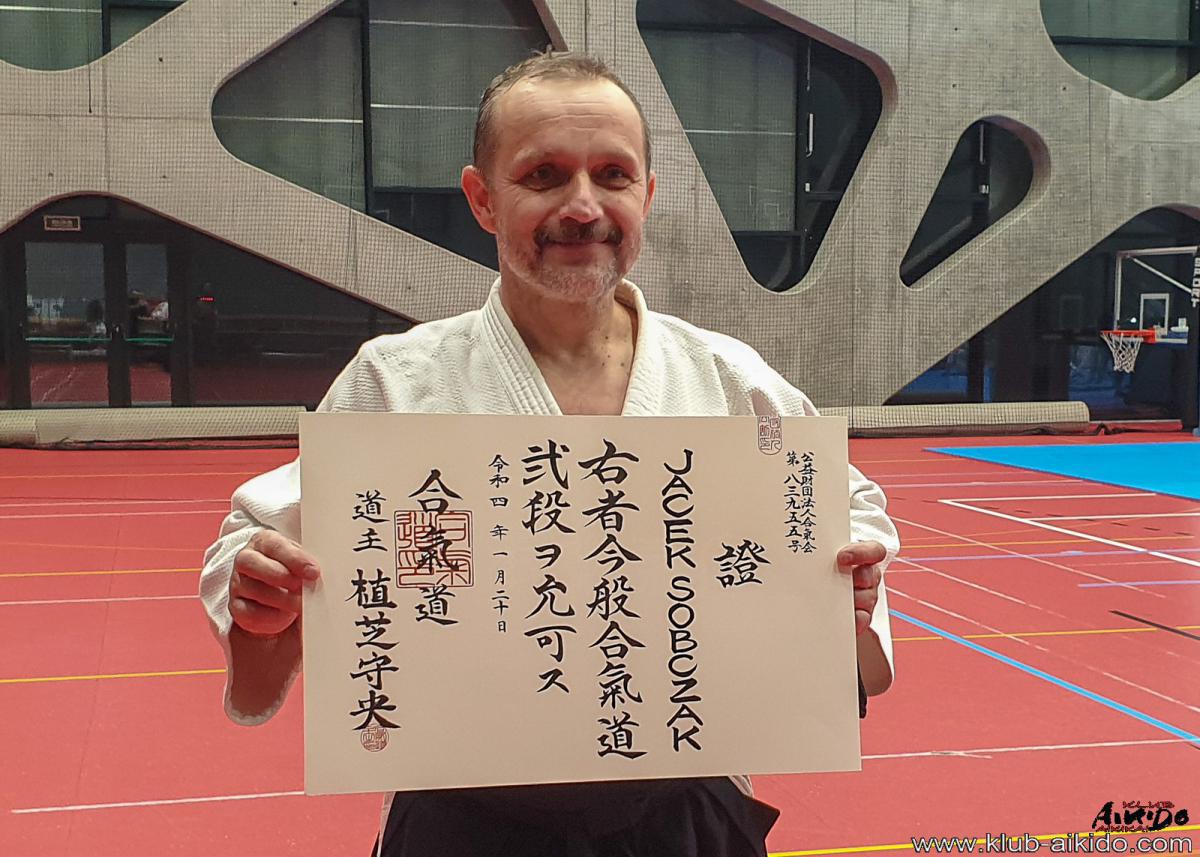 公益財団法人合氣会
第八三九五五号
證
JACEK SOBCZAK
右者今般合氣道
弐段ヲ允可ス
令和四年一月二十日
合氣道
道主 植芝守央
AiKiDo
www.klub-aikido.com